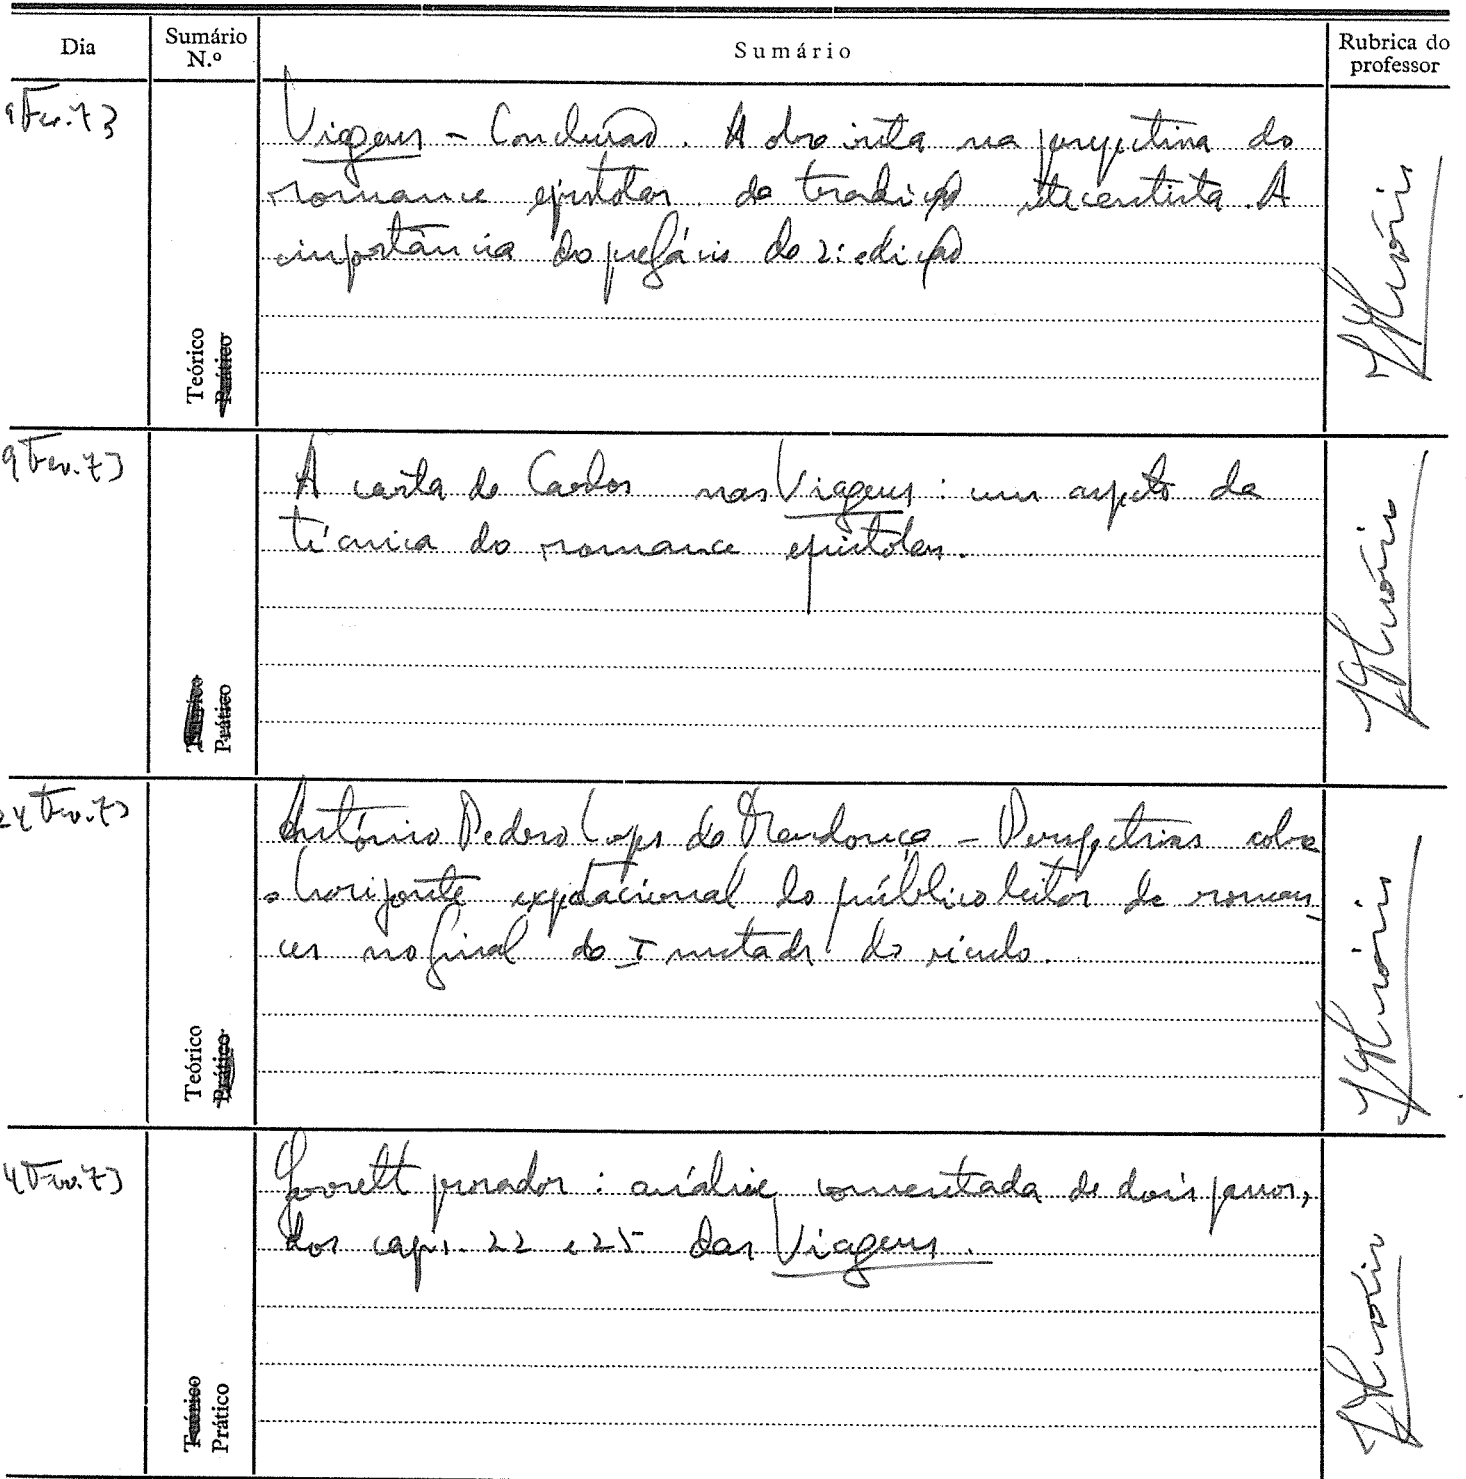 Dia
Sumário N.º
Sumário
Rubrica do professor
9 Fev. 73
Viagens - Conclusão. A obra vista na perspectiva do
romance epistolar da tradição setecentista. A
importância do prefácio da 2ª edição
Teórico
Prático
9 Fev. 73
A carta de Carlos nas Viagens: um aspecto da
técnica do romance epistolar.
Teórico
Prático
24 Fev. 73
António Pedro Lopes de Mendonça - Perspectivas sobre
o horizonte expectacional do público leitor de roman-
ces no final da I metade do século.
Teórico
Prático
4 Fev. 73
Garrett prosador: análise comentada de dois passos,
dos caps. 22 e 25 das Viagens.
Teórico
Prático